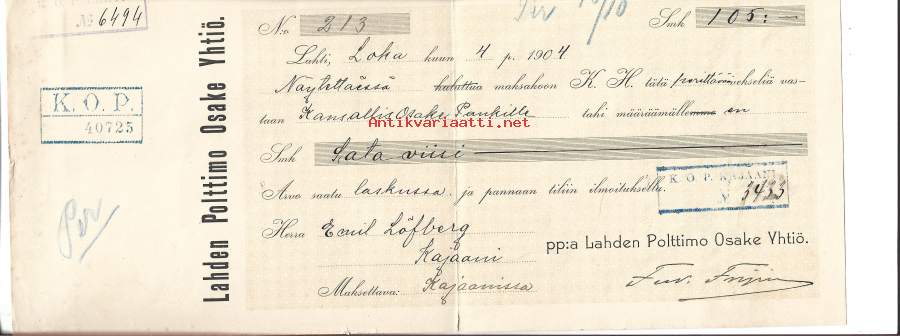 № 6494
K. O. P.
40725
Per
Lahden Polttimo Osake Yhtiö.
N:o 213
Per 10/10
Smk 105:—
Lahti, Loka kuun 4 p. 1904
Näytettäessä kuluttua maksakoon K. H. tätä perittävävekseliä vas-
taan Kansallis Osake Pankille tahi määräämällemme en
Antikvariaatti.net
Smk Sata viisi
Arvo saatu laskussa ja pannaan tiliin ilmoituksella.
K. O. P. KAJAANI
N 3433
Herra Emil Löfberg
Kajaani
pp:a Lahden Polttimo Osake Yhtiö.
Maksettava: Kajaanissa